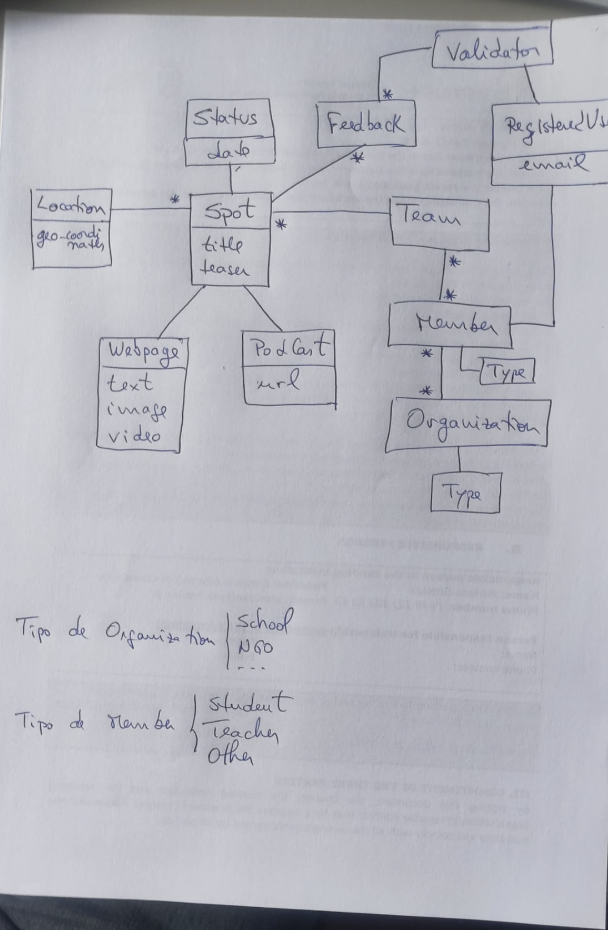 Validator
Status
date
Feedback
RegisteredUs
email
*
*
Location
geo-coordi
nates
*
Spot
title
teaser
*
Team
*
*
Member
Type
*
*
Organization
Type
Webpage
text
image
video
PodCast
url
Tipo de Organization
School
NGO
...
Tipo de Member
Student
Teacher
Other